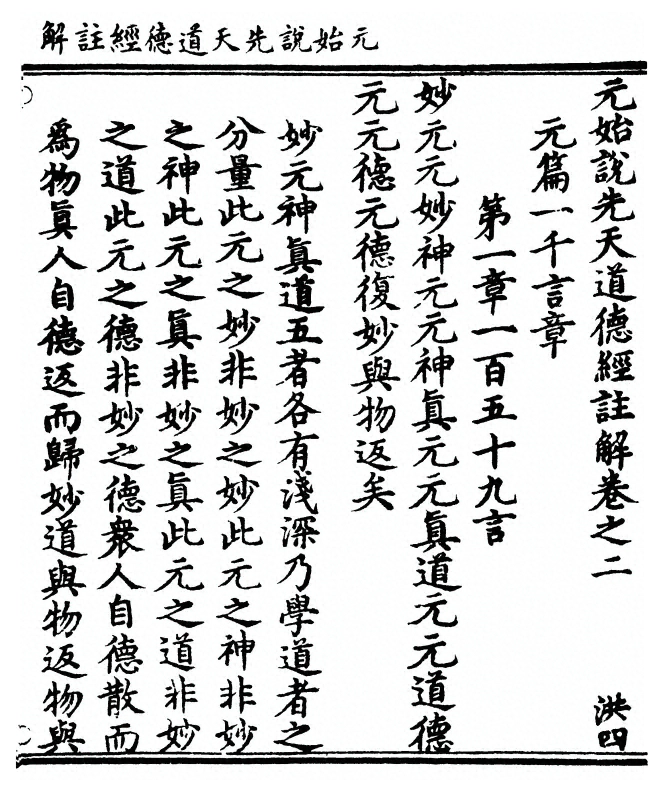 元始說先天道德經註解
元始說先天道德經註解卷之二 洪四
元篇一千言章
第一章一百五十九言
妙元元妙神元元神眞元元眞道元元道德
元元德元德復妙與物返矣
妙元神眞道五者各有淺深乃學道者之
分量此元之妙非妙之妙此元之神非妙
之神此元之眞非妙之眞此元之道非妙
之道此元之德非妙之德衆人自德散而
爲物眞人自德返而歸妙道與物返物與